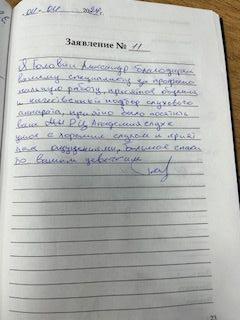 04-04 2024.
Заявление № 11
Я Головин Александр благодарен
вашему специалисту за професси
нальную работу, приятное общение
и качественный подбор слухового
аппарата, приятно было посетить
ваш РЦ Академия слуха
с хорошим слухом и прият
ными ощущениями. Большое спаси
бо вашим девочкам.
23